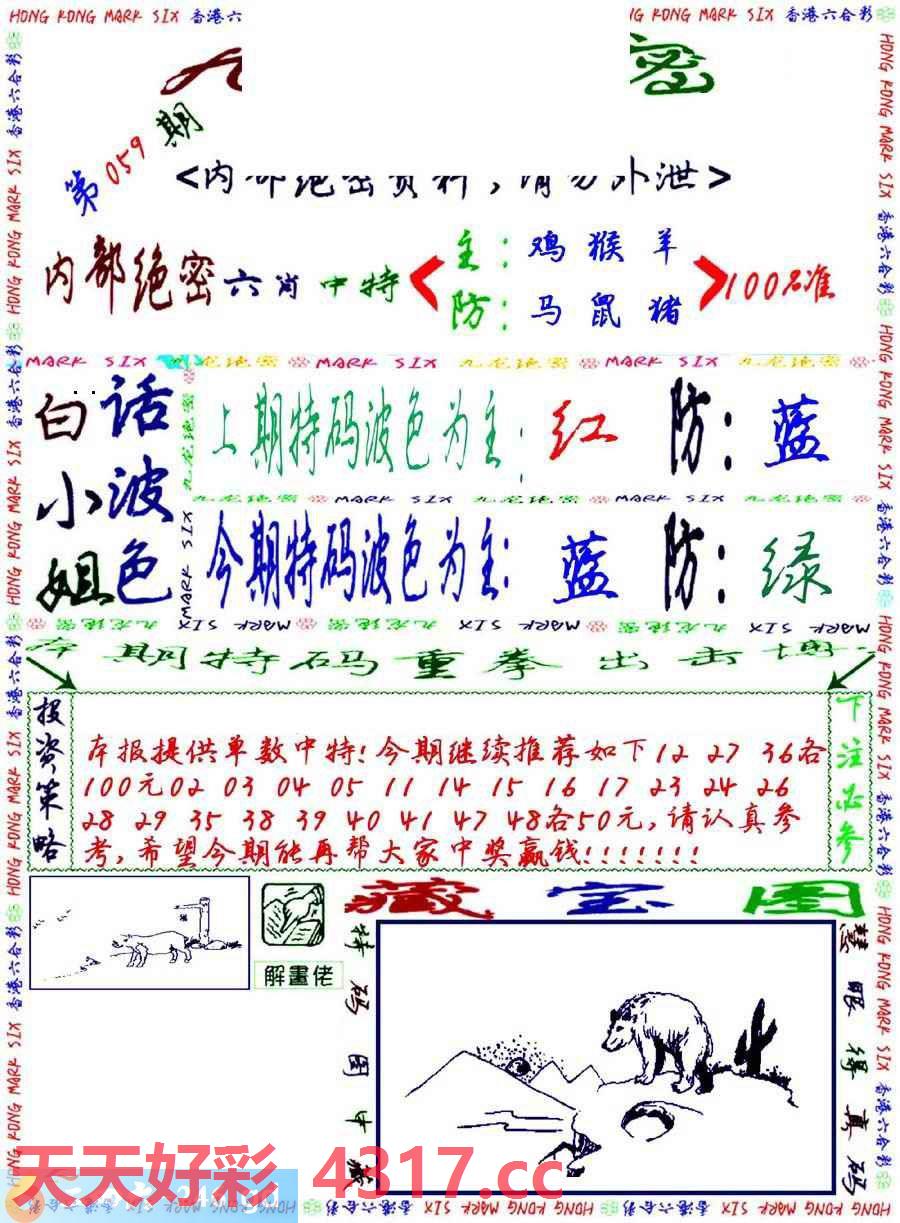 HONG KONG MARK SIX 香港六
G KONG MARK SIX 香港六合彩
密
第059期
<内部绝密资料，请勿外泄>
内部绝密六肖中特
主：鸡猴羊
防：马鼠猪
100%准
MARK SIX 九龙绝密 MARK SIX 九龙绝密 MARK SIX 九龙绝密
白话
小波
姐色
上期特码波色为主：红 防：蓝
九龙绝密 MARK SIX 九龙绝密 MARK SIX
今期特码波色为主：蓝 防：绿
九龙绝密 MARK SIX 九龙绝密 MARK SIX 九龙绝密 MARK SIX
本期特码重拳出击博
投资策略
本报提供单数中特!今期继续推荐如下12 27 36各
100元02 03 04 05 11 14 15 16 17 23 24 26
28 29 35 38 39 40 41 47 48各50元,请认真参
考,希望今期能再帮大家中奖赢钱!!!!!!!
下注必参
解畫佬
藏宝图
特码图中藏
慧眼得真码
天天好彩 4317.cc
HONG KONG MARK SIX 香港六合彩